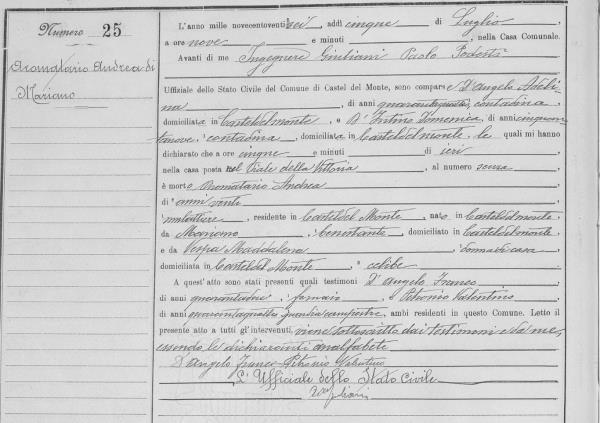 Numero 25
Aromatario Andrea di
Mariano
L'anno millenovecentoventisei, addì cinque di Luglio
a ore nove e minuti, nella Casa Comunale.
Avanti di me Ingegnere Giuliani Paolo Podestà
Uffiziale dello Stato Civile del Comune di Castel del Monte, sono comparse D'Angelo Adel
ina, di anni, contadina
domiciliata in Casteldelmonte, e D'Intino Domenica, di anni cinquan
tanove, contadina, domiciliata in Casteldelmonte, le quali mi hanno
dichiarato che a ore cinque e minuti di ieri
nella casa posta nel Viale della Vittoria, al numero senza
è morto Aromatario Andrea
di anni venti
mulattiere, residente in Castel del Monte, nato in Casteldelmonte
da Mariano, benestante, domiciliato in Casteldelmonte
e da Vespa Maddalena, donna di casa
domiciliata in Castel del Monte, celibe
A quest'atto sono stati presenti quali testimoni D'Angelo Franco
di anni quarantadue, fornaio, e Petronio Valentino
di anni quarantaquattro guardia campestre, ambi residenti in questo Comune. Letto il
presente atto a tutti gl'intervenuti, viene sottoscritto dai testimoni e da me,
essendo le dichiaranti analfabete
D'Angelo Franco Petronio Valentino
L'Uffiziale dello Stato Civile
Giuliani